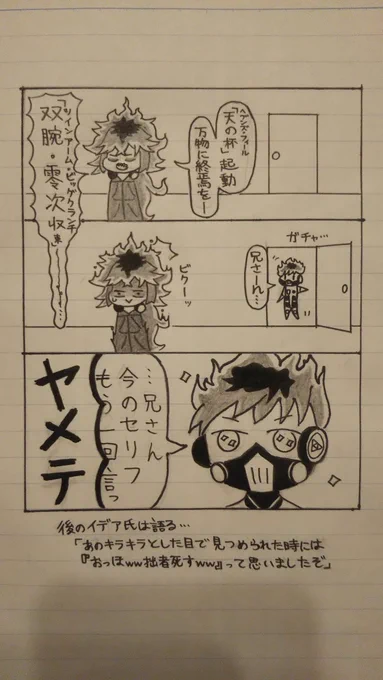 「天の杯」起動
万物に終焉をー
「ツインアーム・ビッグクランチ
双腕・零次収束
ガチャ…
兄さーん…
ビクーッ
…兄さん
今のセリフ
もう一回言っ
ヤメテ
後のイデア氏は語る…
「あのキラキラとした目で見つめられた時には
『おっほww拙者死すww』って思いましたぞ」